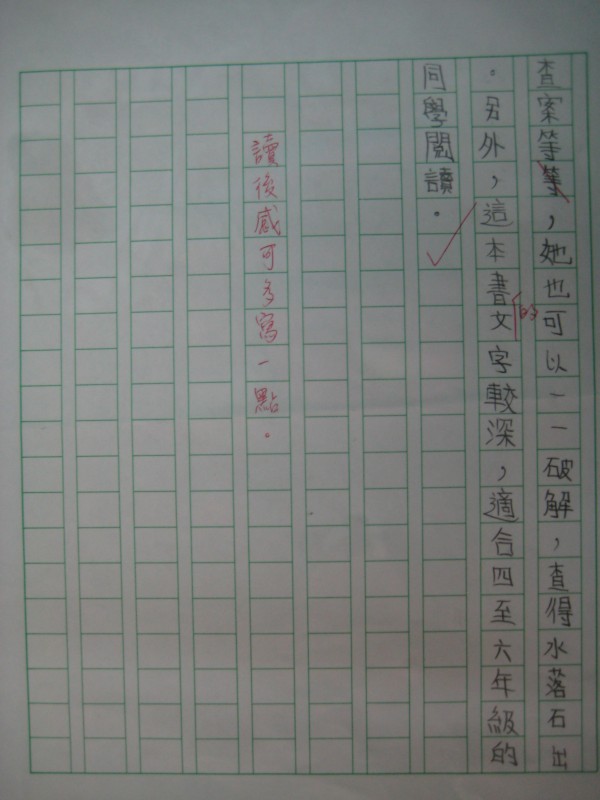 查案等等，她也可以一一破解，查得水落石出
。另外，這本書文字較深，適合四至六年級的
的
同學閱讀。
讀後感可多寫一點。